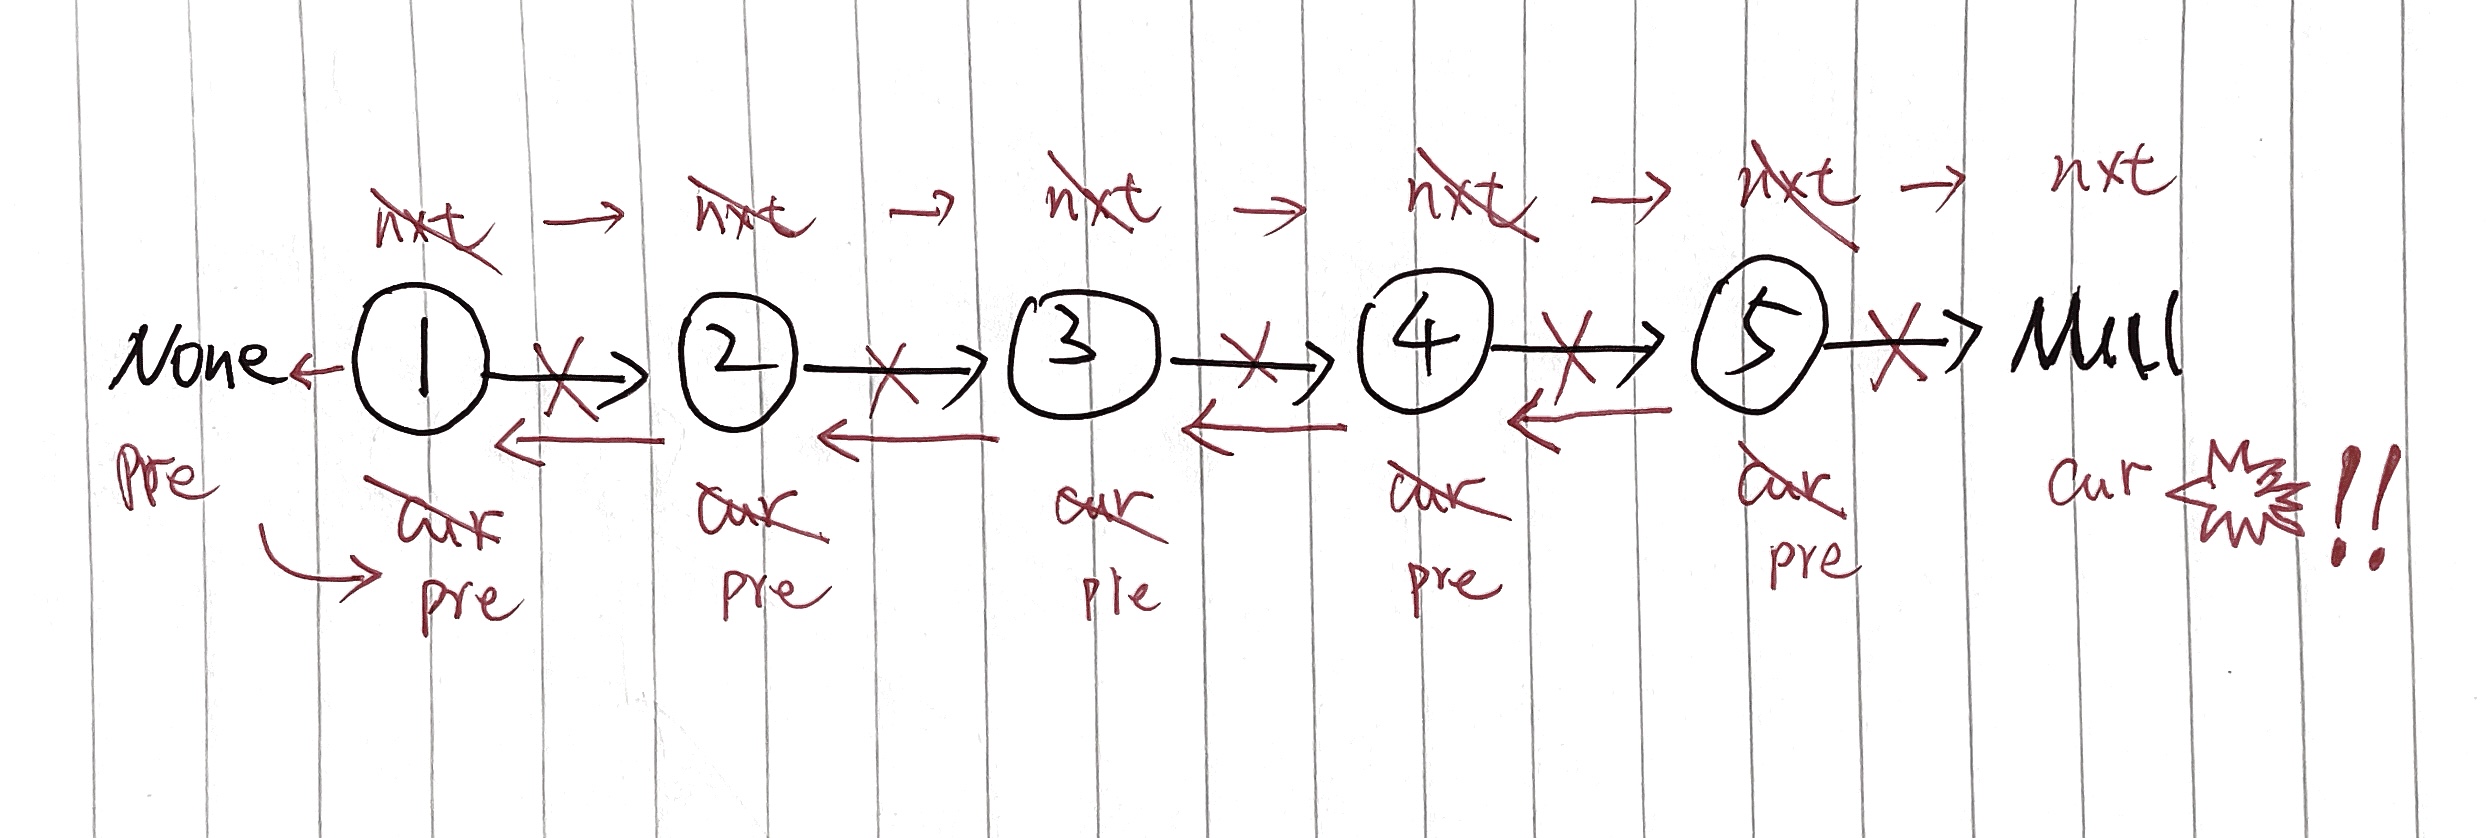 nxt → nxt → nxt → nxt → nxt → nxt
None ← 1 → 2 → 3 → 4 → 5 → Null
pre cur cur cur cur cur cur !!
pre pre pre pre pre